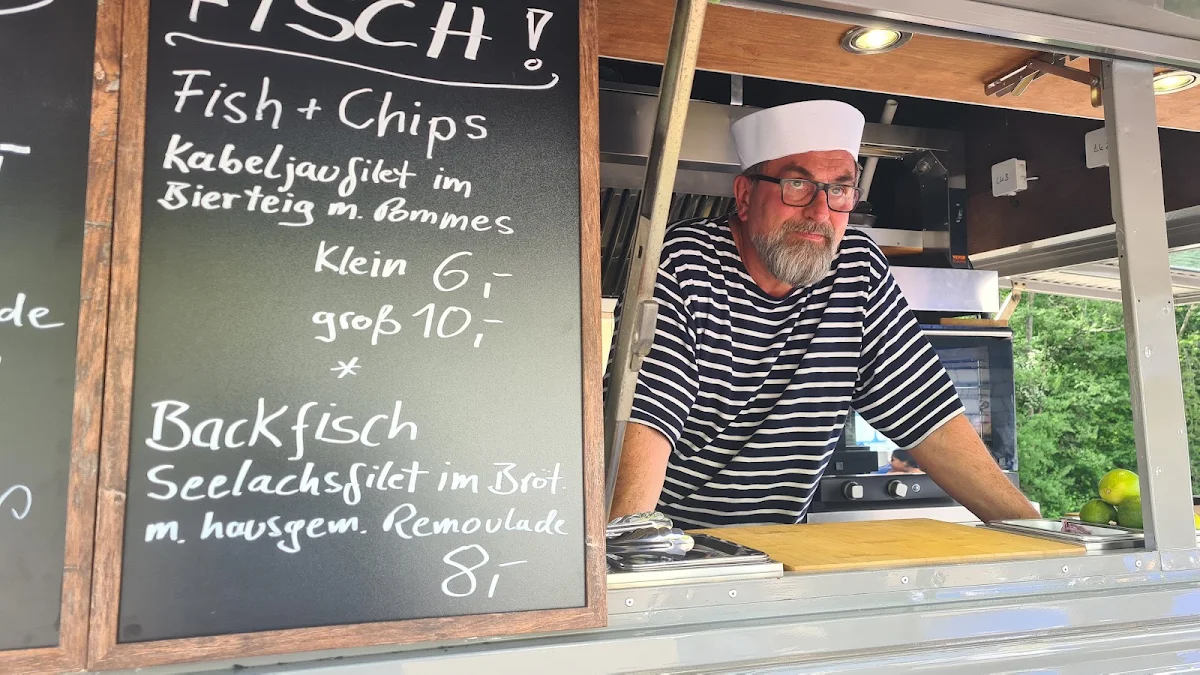 FISCH!
Fish + Chips
Kabeljaufilet im
Bierteig m. Pommes
Klein 6,-
groß 10,-
*
Backfisch
Seelachsfilet im Bröt.
m. hausgem. Remoulade
8,-
de